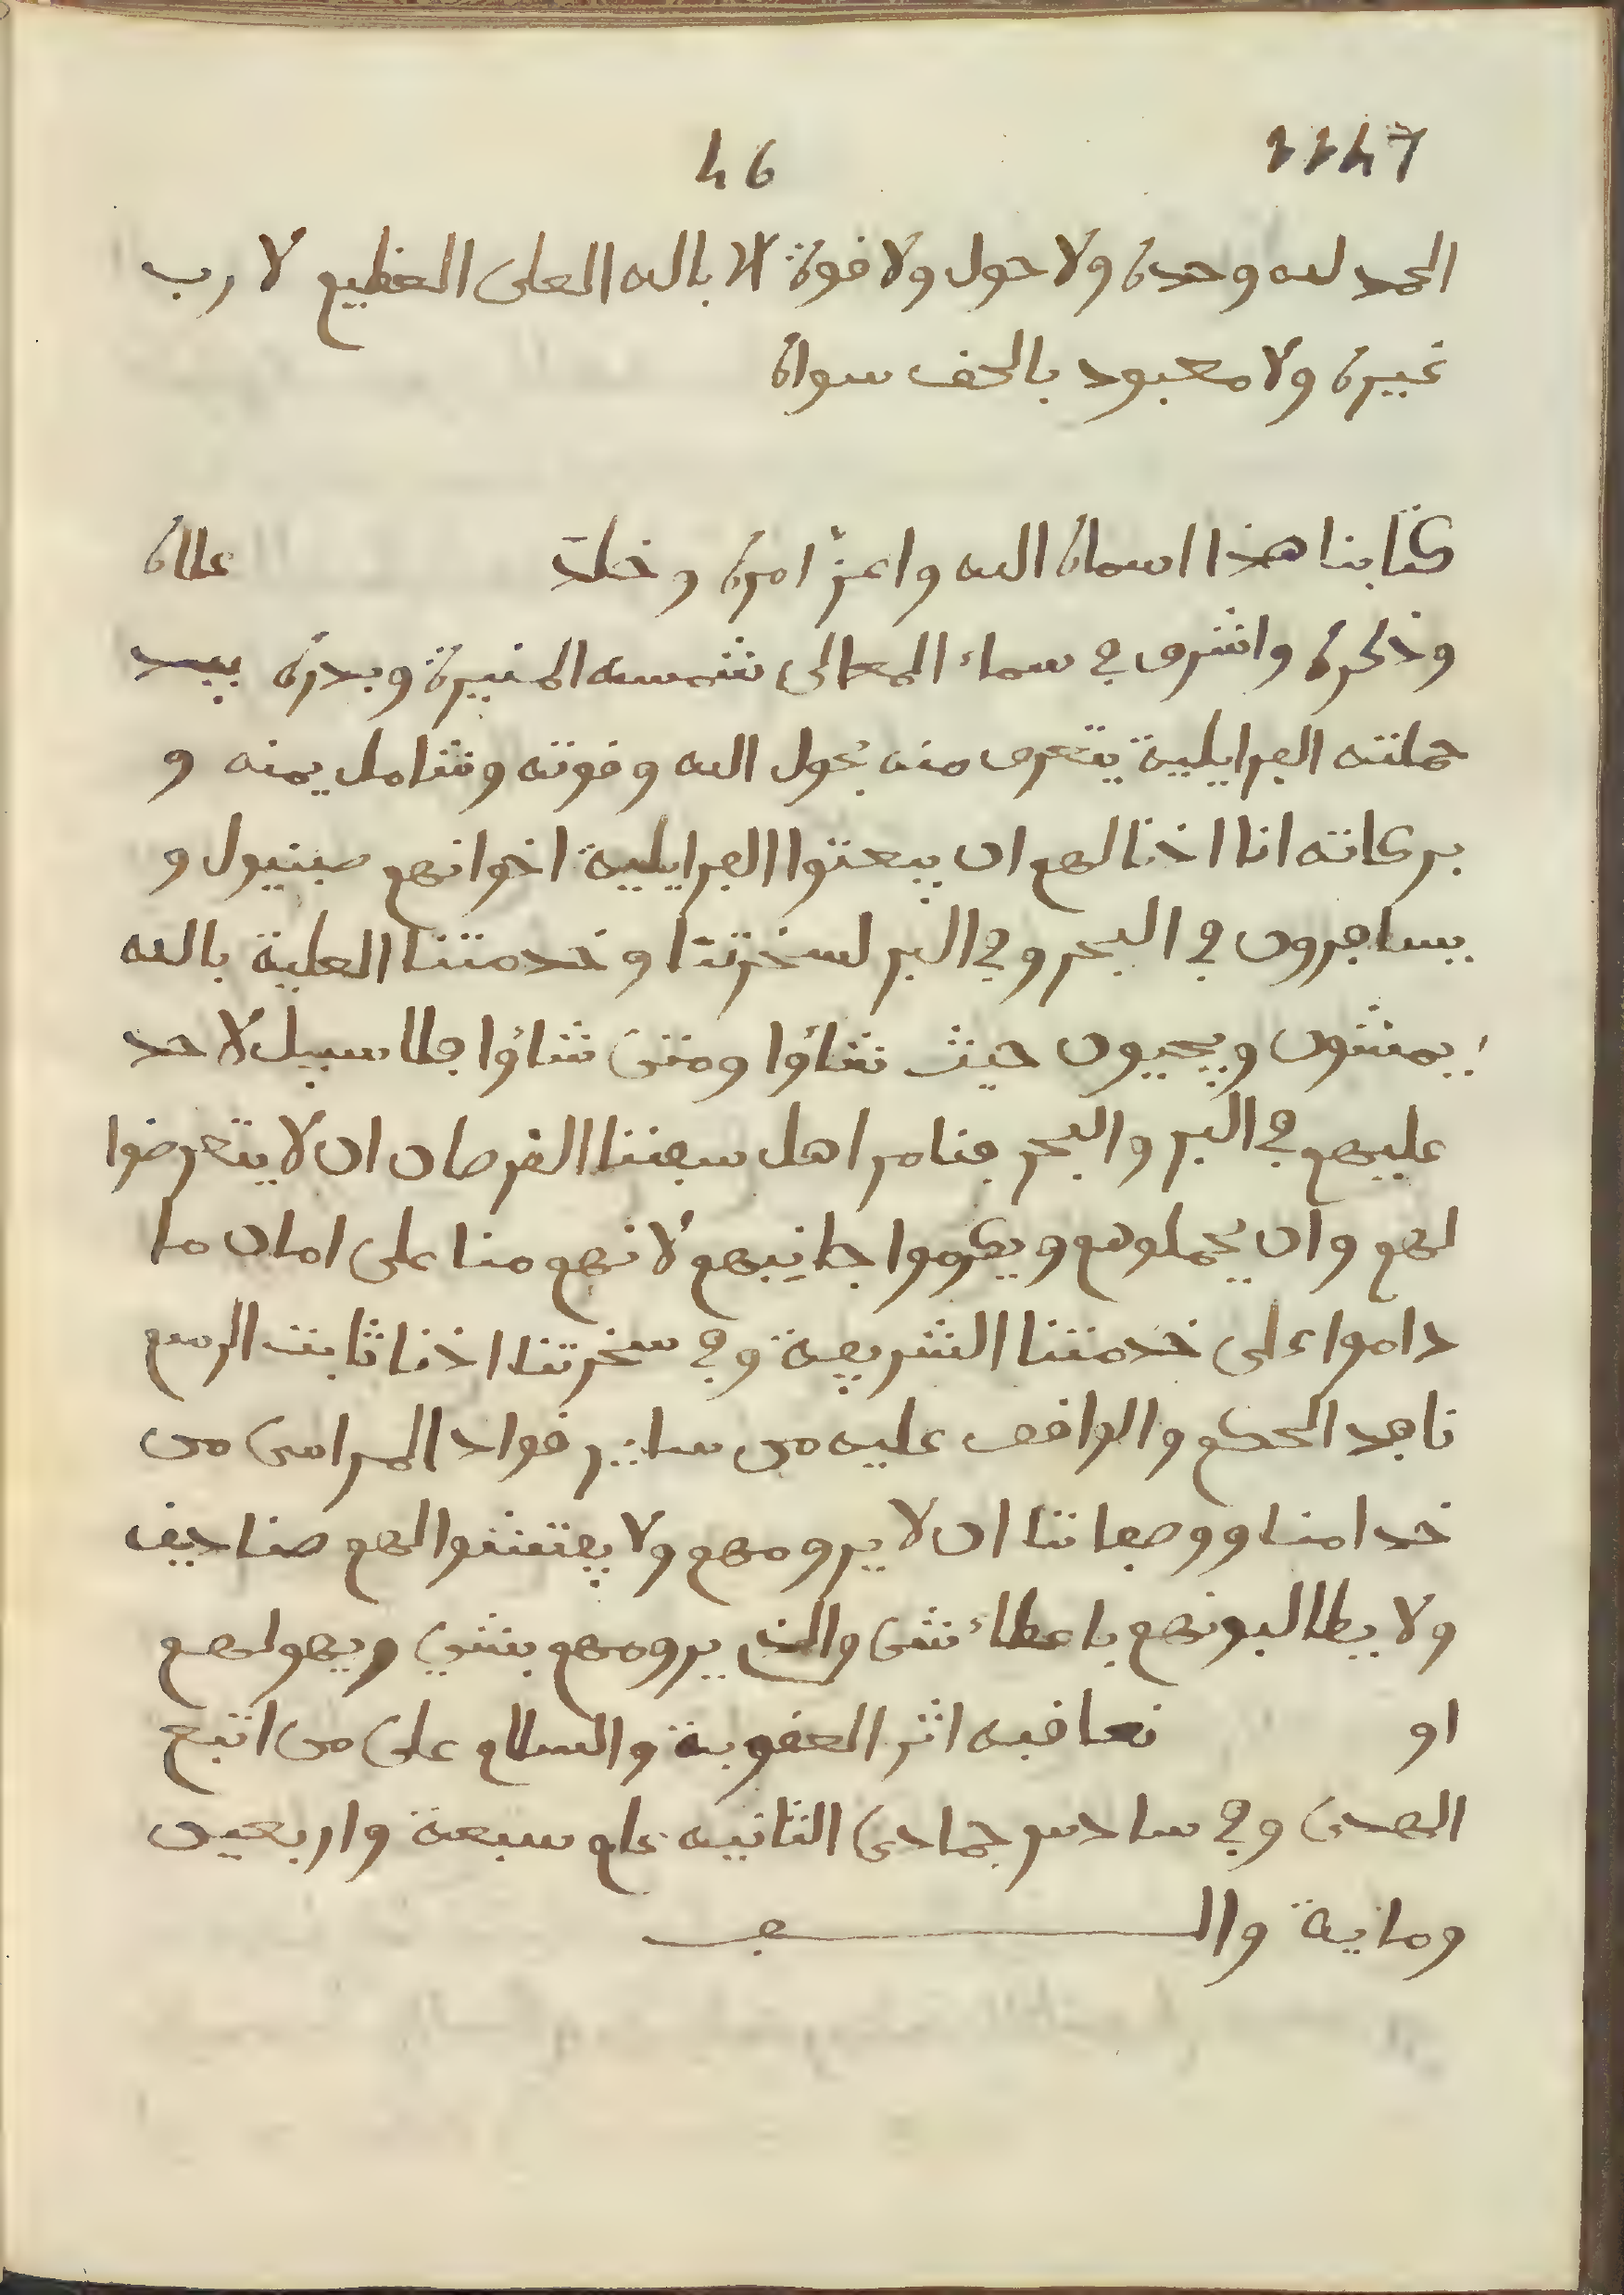 1147 46
الحمد لله وحده ولا حول ولا قوة الا بالله العلى العظيم لا رب
غيره ولا معبود بالحق سواه
كتابنا هذا اسماه الله واعز امره وخلد علاه
وذكره واشرق في سماء المعالى شمسه المنيرة وبدره بيد
حملته الفرايلية يتعرف منه بحول الله وقوته وشامل يمنه و
بركاته انا اذنا لهم ان يبعثوا الفرايلية اخوانهم صبنيول و
يسافرون في البحر وفي البر لسخرتنا وخدمتنا العلية بالله
يمشون ويجيون حيث شاؤا ومتى شاؤا فلا سبيل لاحد
عليهم في البر والبحر فنامر اهل سفننا القرصان ان لا يتعرضوا
لهم وان يحملوهم ويكرموا جانبهم لانهم منا على امان ما
داموا على خدمتنا الشريفة وفي سخرتنا اذنا ثابت الرسم
نافد الحكم والواقف عليه من ساير قواد المراسى من
خدامنا ووصفاتنا ان لا يرومهم ولا يفتشوا لهم صناديق
ولا يطالبونهم باعطاء شى والذي يرومهم بشي ويهولهم
او نعاقبه اثر العقوبة والسلام على من اتبع
الهدى وفي سادس جمادى الثانيه عام سبعة واربعين
وماية والف